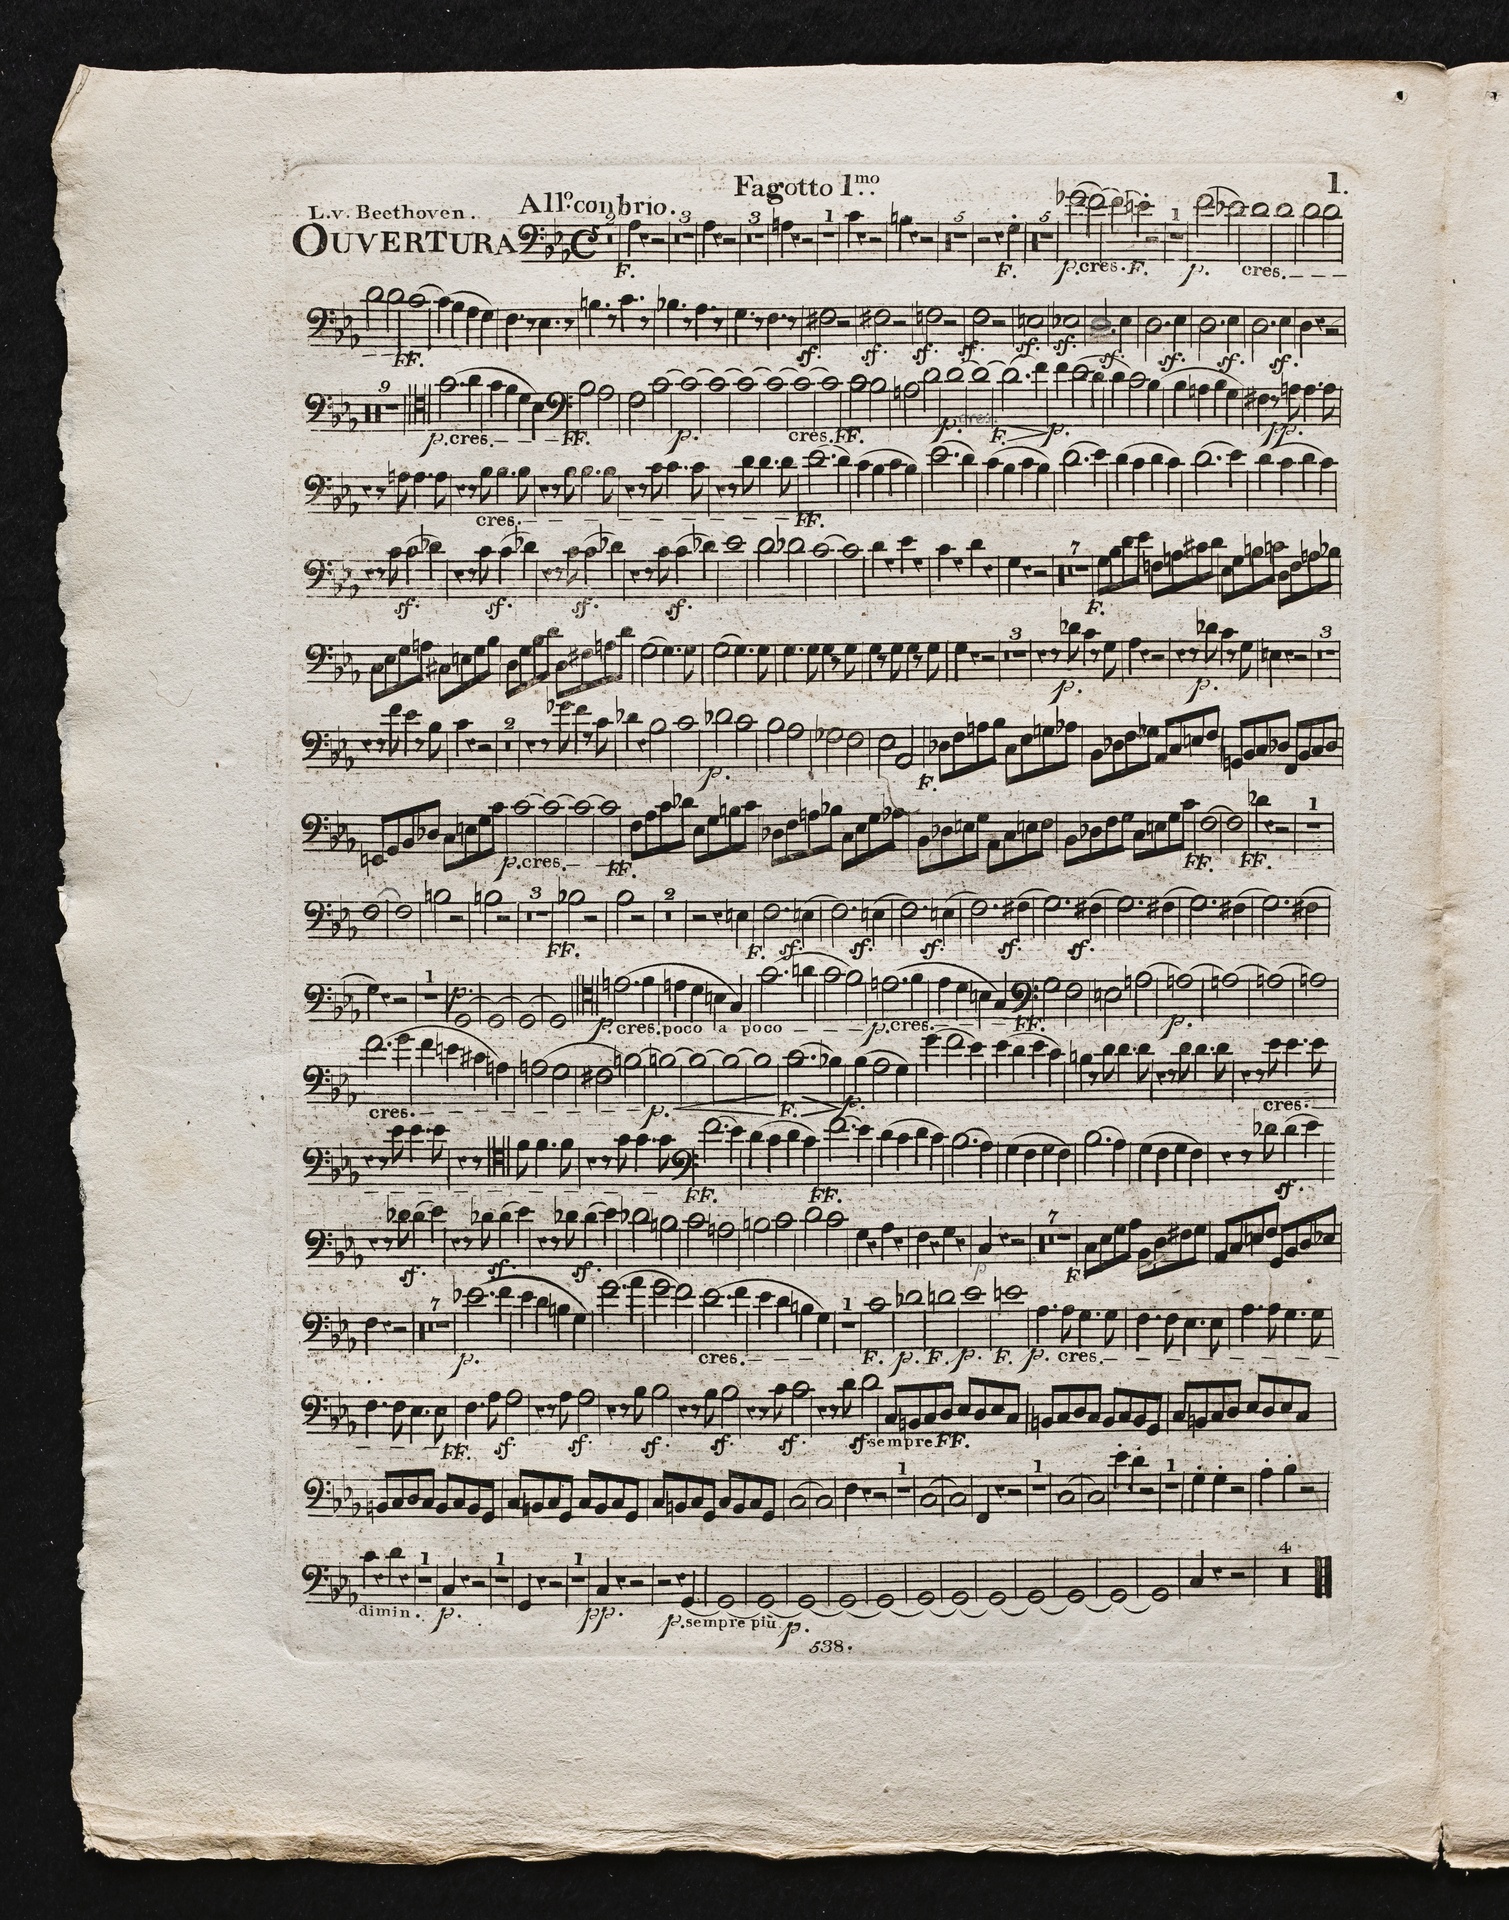 Fagotto 1mo
1.
L.v. Beethoven.
Allo. con brio.
OUVERTURA
2 3 3 1 5 5 1
F. F. p. cres. F. p. cres.
FF. sf. sf. sf. sf. sf. sf. sf. sf. sf. sf.
9
p. cres. FF. p. cres. FF. p. cres. F. p. pp.
cres. FF.
7
sf. sf. sf. sf. F.
3 3
p. p.
2
p. F.
1
p. cres. FF. FF. FF.
3 2
FF. F. sf. sf. sf. sf. sf.
1
p. p. cres. poco a poco p. cres. FF. p.
cres. p. F. p. cres.
FF. FF. sf.
7
sf. sf. sf. p F
7 1
p. cres. F. p. F. p. F. p. cres.
FF. sf. sf. sf. sf. sf. sf. sempre FF.
1 1 1
1 1 1 4
dimin. p. pp. p. sempre più p.
538.